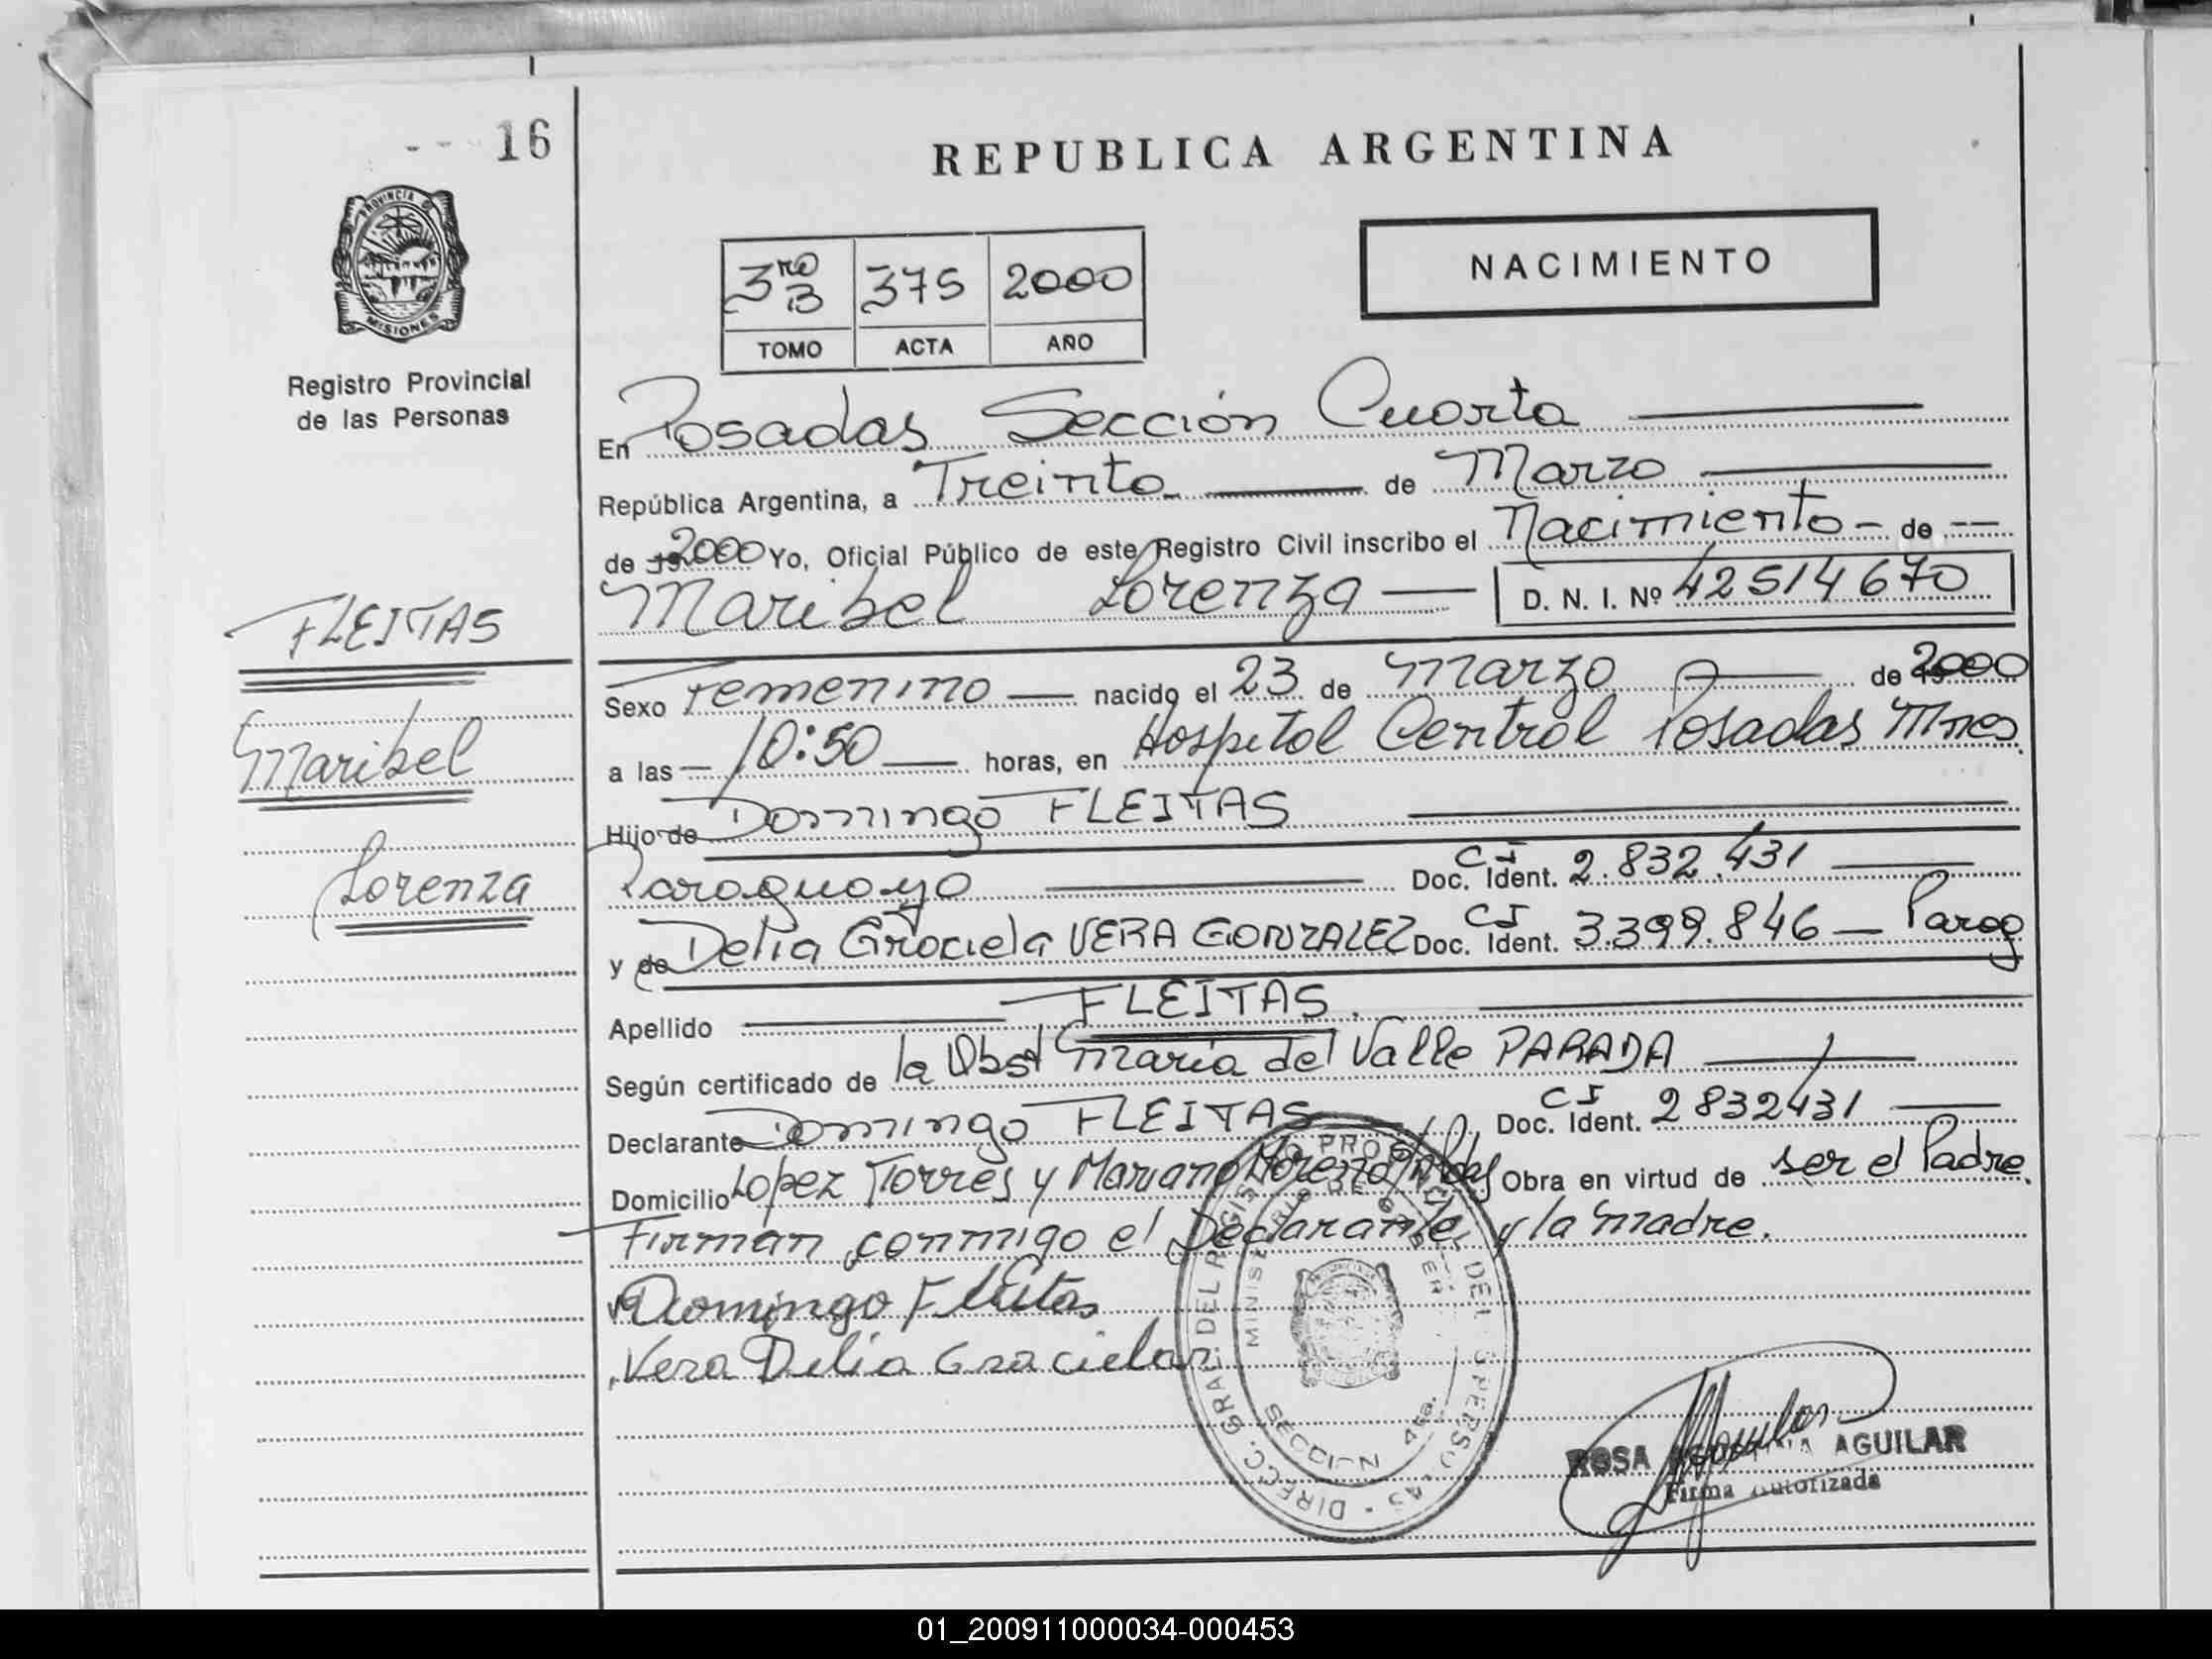 16
REPUBLICA ARGENTINA
PROVINCIA D
MISIONES
Registro Provincial
de las Personas
3ro B 375 2000
TOMO ACTA AÑO
NACIMIENTO
En Posadas Sección Cuarta
República Argentina, a Treinta de Marzo
de 2000 Yo, Oficial Público de este Registro Civil inscribo el Nacimiento - de --
Maribel Lorenza D. N. I. Nº 42514670
FLEITAS
Maribel
Lorenza
Sexo Femenino nacido el 23 de Marzo de 2000
a las 10:50 horas, en Hospital Central Posadas Mnes.
Hijo de Domingo FLEITAS
Paraguayo Doc. Ident. CI 2.832.431
y de Delia Graciela VERA GONZALEZ Doc. Ident. CI 3.399.846 Parag
Apellido FLEITAS.
Según certificado de la Obst María del Valle PARADA
Declarante Domingo FLEITAS Doc. Ident. CI 2832431
Domicilio Lopez Torres y Mariano Moreno Pdas Obra en virtud de ser el Padre.
Firman conmigo el Declarante y la madre.
Domingo Fleitas
Vera Delia Graciela
DIRECC. GRAL. DEL
SECCION 4ta.
ROSA AGUILAR
Firma Autorizada
01_200911000034-000453